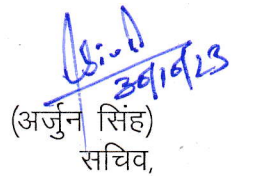 30/10/23
(अर्जुन सिंह)
सचिव,